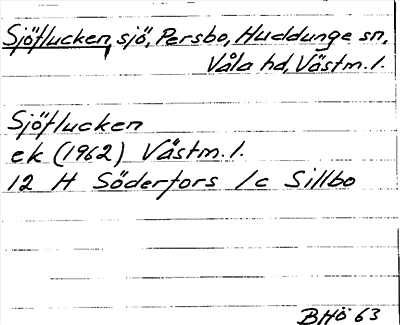 Sjöflucken, sjö, Persbo, Huddunge sn,
Våla hd, Västm. l.
Sjöflucken
ek (1962) Västm. l.
12 H Söderfors 1c Sillbo
BHö 63